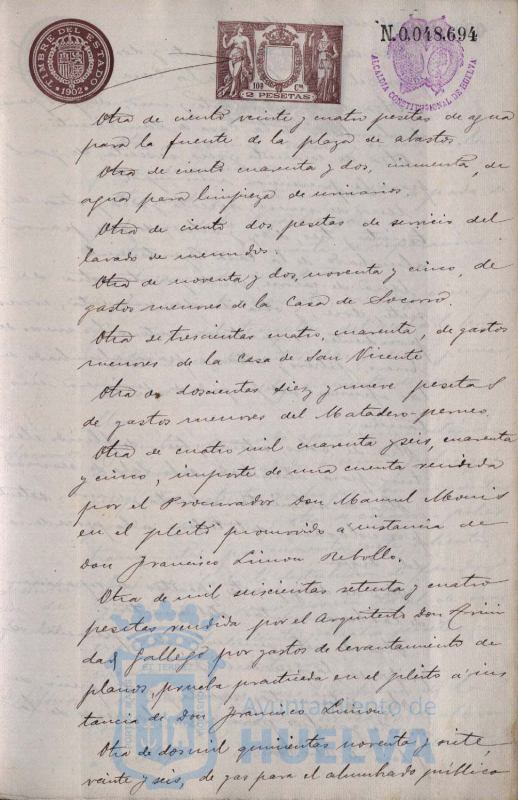 TIMBRE DEL ESTADO
1902
100 Cms
2 PESETAS
N.0.048.694
ALCALDIA CONSTITUCIONAL DE HUELVA
Otra de ciento veinte y cuatro pesetas de agua
para la fuente de la plaza de abastos.
Otra de ciento cuarenta y dos, cincuenta, de
agua para limpieza de urinarios
Otra de ciento dos pesetas de servicio del
lavado de menudos.
Otra de noventa y dos, noventa y cinco, de
gastos menores de la Casa de Socorro.
Otra de trescientas cuatro, cuarenta, de gastos
menores de la Casa de San Vicente
Otra de doscientas diez y nueve pesetas
de gastos menores del Matadero-perneo.
Otra de cuatro mil cuarenta y seis, cuarenta
y cinco, importe de una cuenta rendida
por el Procurador Don Manuel
en el pleito promovido á instancia de
Don Francisco Limon Rebollo.
Otra de mil seiscientas setenta y cuatro
pesetas rendida por el Arquitecto Don Trini
dad Gallego por gastos de levantamiento de
planos, prueba practicada en el pleito á ins
tancia de Don Francisco Limon.
Otra de dos mil quinientas noventa y siete,
veinte y seis, de gas para el alumbrado público
Ayuntamiento de
HUELVA